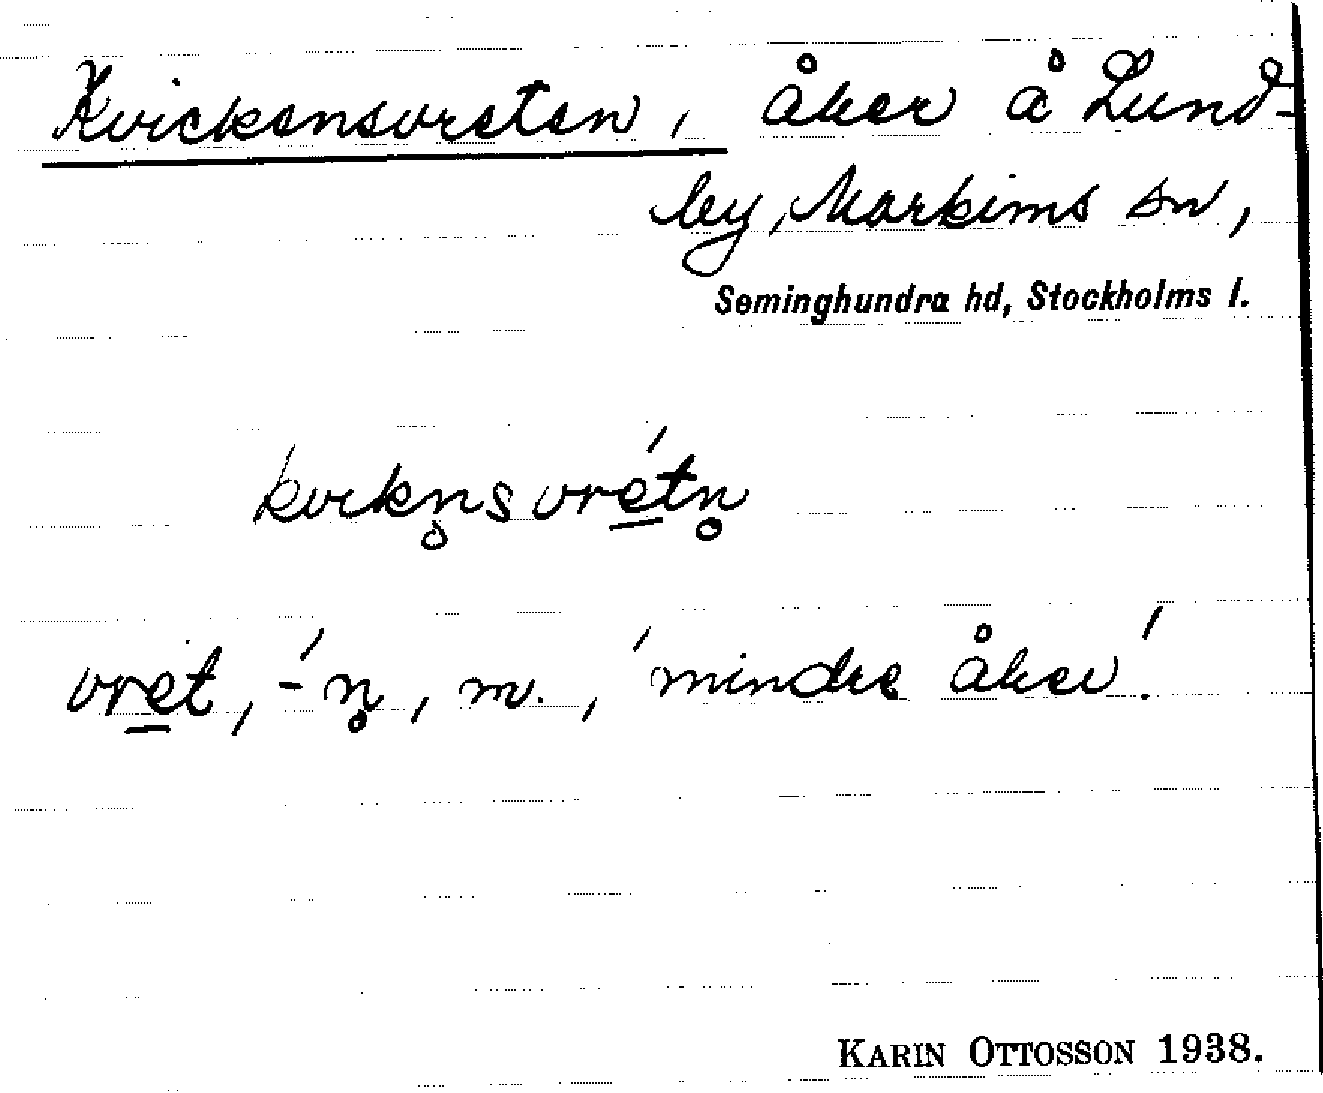 Kvickensvreten, åker å Lund-
by, Markims sn,
Seminghundra hd, Stockholms l.
kvikn̥svré̲tn̥
vre̲t, -́n̥, m., 'mindre åker'.
KARIN OTTOSSON 1938.